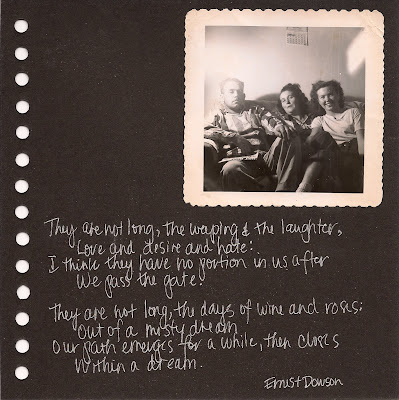 They are not long, the weeping & the laughter,
Love and desire and hate:
I think they have no portion in us after
We pass the gate.
They are not long, the days of wine and roses:
Out of a misty dream
Our path emerges for a while, then closes
Within a dream.
Ernest Dowson